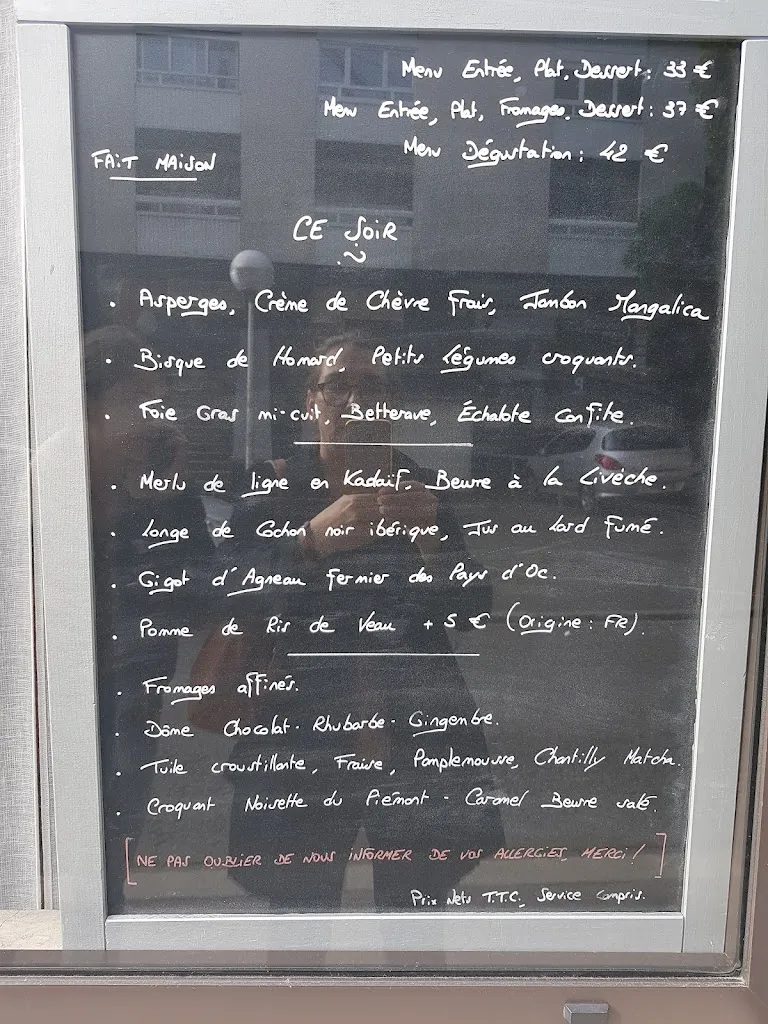 Menu Entrée, Plat, Dessert : 33 €
Menu Entrée, Plat, Fromages, Dessert : 37 €
Menu Dégustation : 42 €
FAIT MAISON
CE SOIR
. Asperges, Crème de Chèvre frais, Jambon Mangalica
. Bisque de Homard, Petits légumes croquants.
. Foie Gras mi-cuit, Betterave, Échalote confite.
. Merlu de ligne en Kadaïf, Beurre à la Livèche.
. Longe de Cochon noir ibérique, Jus au lard fumé.
. Gigot d'Agneau fermier des Pays d'Oc.
. Pomme de Ris de Veau + 5 € (Origine : FR).
. Fromages affinés.
. Dôme Chocolat - Rhubarbe - Gingembre.
. Tuile croustillante, Fraise, Pamplemousse, Chantilly Matcha.
. Croquant Noisette du Piémont - Caramel Beurre salé.
[NE PAS OUBLIER DE NOUS INFORMER DE VOS ALLERGIES, MERCI !]
Prix Nets T.T.C, Service Compris.